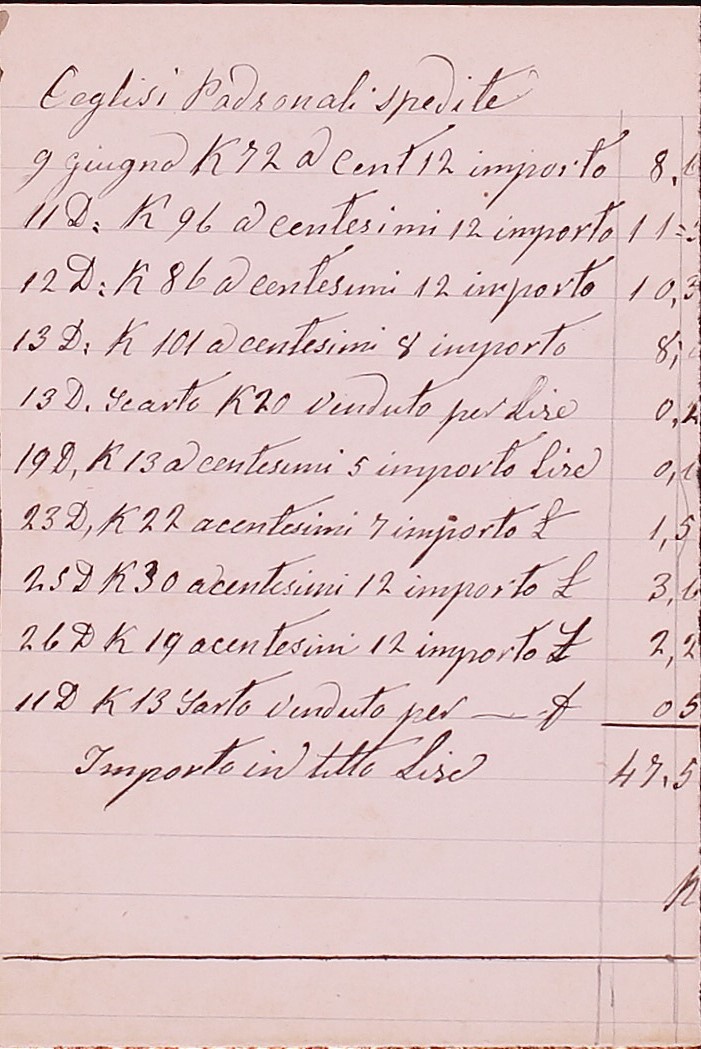 Ceglisi Padronali spedite
9 giugno K 72 a Cent 12 importo 8,6
11 D: K 96 a centesimi 12 importo 11=5
12 D: K 86 a centesimi 12 importo 10,3
13 D: K 101 a centesimi 8 importo 8,
13 D. Scarto K20 venduto per Lire 0,2
19 D, K 13 a centesimi 5 importo Lire 0,6
23 D, K 22 a centesimi 7 importo £ 1,5
25 D K 30 a centesimi 12 importo £ 3,6
26 D K 19 a centesimi 12 importo £ 2,2
11 D K 13 Sarto venduto per — £ 0 5
Importo in tutto Lire 47.5